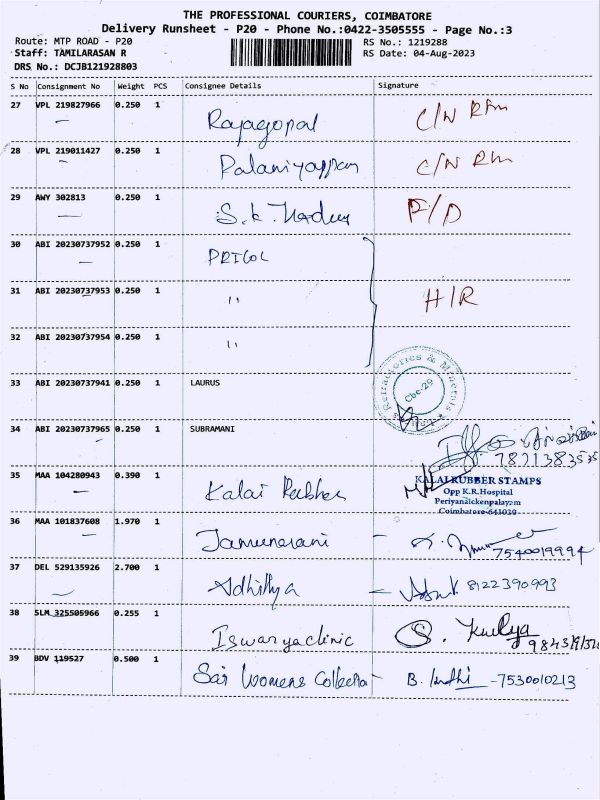 THE PROFESSIONAL COURIERS, COIMBATORE
Delivery Runsheet - P20 - Phone No.:0422-3505555 - Page No.:3
Route: MTP ROAD - P20 RS No.: 1219288
Staff: TAMILARASAN R RS Date: 04-Aug-2023
DRS No.: DCJB121928803
S No Consignment No Weight PCS Consignee Details Signature
27 VPL 219827966 0.250 1 Rajagopal C/N
28 VPL 219011427 0.250 1 Palaniyappan C/N
29 AWY 302813 0.250 1 S.k. F/D
30 ABI 20230737952 0.250 1 PRICOL
31 ABI 20230737953 0.250 1 11 H/R
32 ABI 20230737954 0.250 1 11
33 ABI 20230737941 0.250 1 LAURUS
Refractories & Minerals
Cbe-29
34 ABI 20230737965 0.250 1 SUBRAMANI
35 MAA 104280943 0.390 1 Kalai Rubber
KALAI RUBBER STAMPS
Opp K.R.Hospital
Periyanaickenpalayam
Coimbatore-641020
36 MAA 101837608 1.970 1 Jamunarani - 7540019994
37 DEL 529135926 2.700 1 Adhithya - 8122390993
38 SLM 325505966 0.255 1 Iswarya clinic S.
39 BDV 119527 0.500 1 Sai Womens Collection - B. - 7530010213